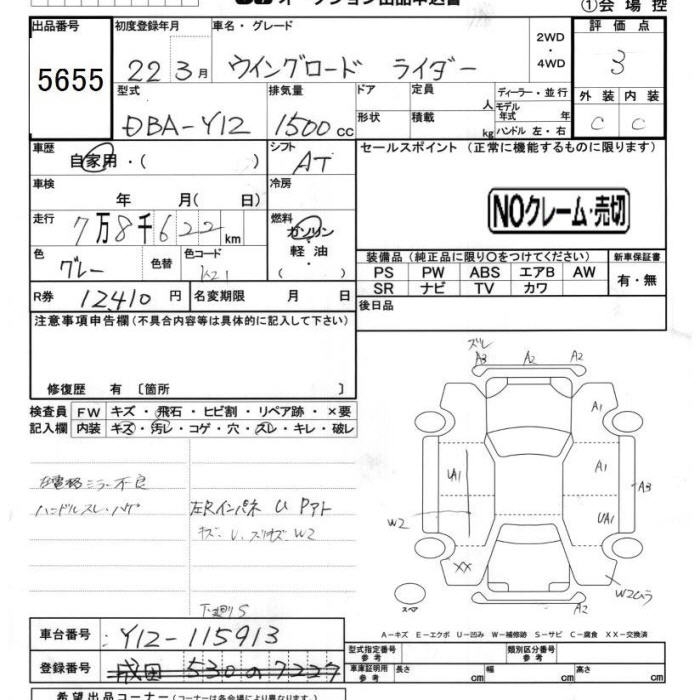 オークション出品申込書
①会場控
出品番号 5655
初度登録年月 22 3月
車名・グレード ウイングロード ライダー
2WD・4WD
評価点 3
型式 DBA-Y12
排気量 1500cc
ドア 形状
定員 人
積載 kg
ディーラー・並行
モデル年式 年
ハンドル 左・右
外装 C 内装 C
車歴 自家用・( )
シフト AT
セールスポイント (正常に機能するものに限ります)
車検 年 月( 日)
冷房
NOクレーム・売切
走行 7万8千622km
燃料 ガソリン・軽油・( )
色 グレー 色替 色コード K21
装備品(純正品に限り○をつけてください)
新車保証書
PS PW ABS エアB AW
SR ナビ TV カワ
有・無
R券 12,410円
名変期限 月 日
後日品
注意事項申告欄(不具合内容等は具体的に記入して下さい)
修復歴 有 〔箇所 〕
検査員記入欄
FW キズ・飛石・ヒビ割・リペア跡・×要
内装 キズ・汚レ・コゲ・穴・スレ・キレ・破レ
左電格ミラー不良
ハンドルスレ・ハゲ
左Rインパネ U Pアト
キズ・U、スリキズ W2
下廻りS
ズレ
A3 A2 A2
A1
UA1 A1
A3
W2 UA1
XX
W2ムラ
スペア
A2
A-キズ E-エクボ U-凹み W-補修跡 S-サビ C-腐食 XX-交換済
車台番号 Y12-115913
登録番号 成田 530の7227
型式指定番号 参考
類別区分番号 参考
車庫証明用 参考
長さ cm 幅 cm 高さ cm
希望出品コーナー(コーナーは各会場により異なります)